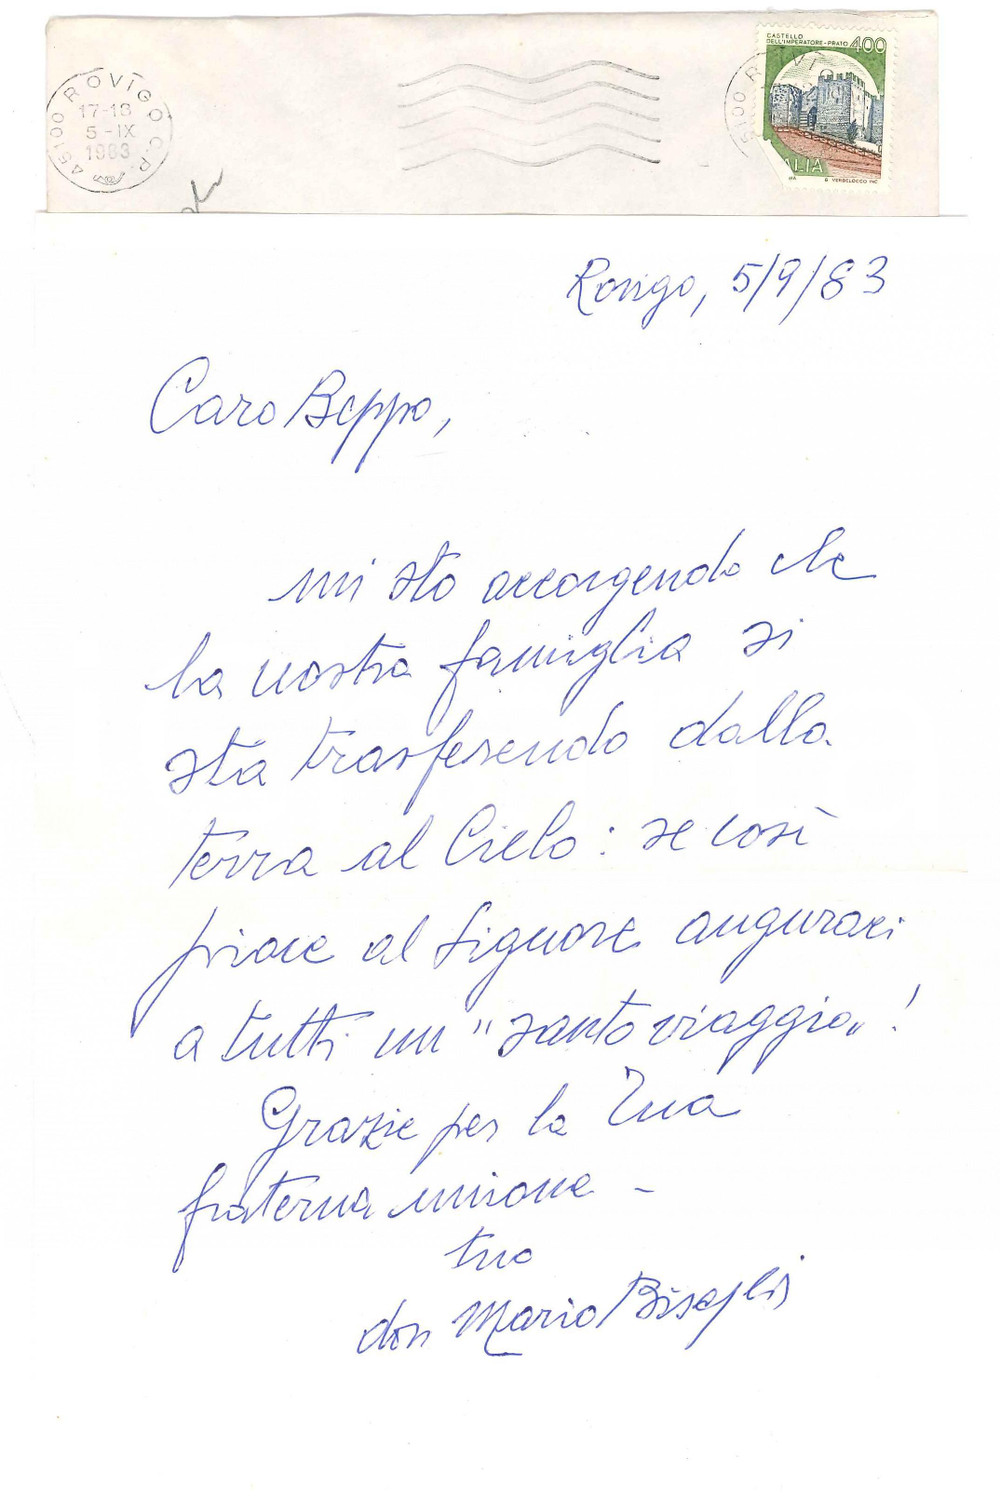 CASTELLO
DELL'IMPERATORE-PRATO 400
45100 ROVIGO C.P.
17-18
5-IX
1983
45100 ROVI
ALIA
G. VERDELOCCO INC.
Rovigo, 5/9/83
Caro Beppo,
mi sto accorgendo che
la nostra famiglia si
sta trasferendo dalla
terra al Cielo: se così
piace al Signore auguraci
a tutti un "santo viaggio"!
Grazie per la Tua
fraterna unione -
tuo
don Mario Bisaglia